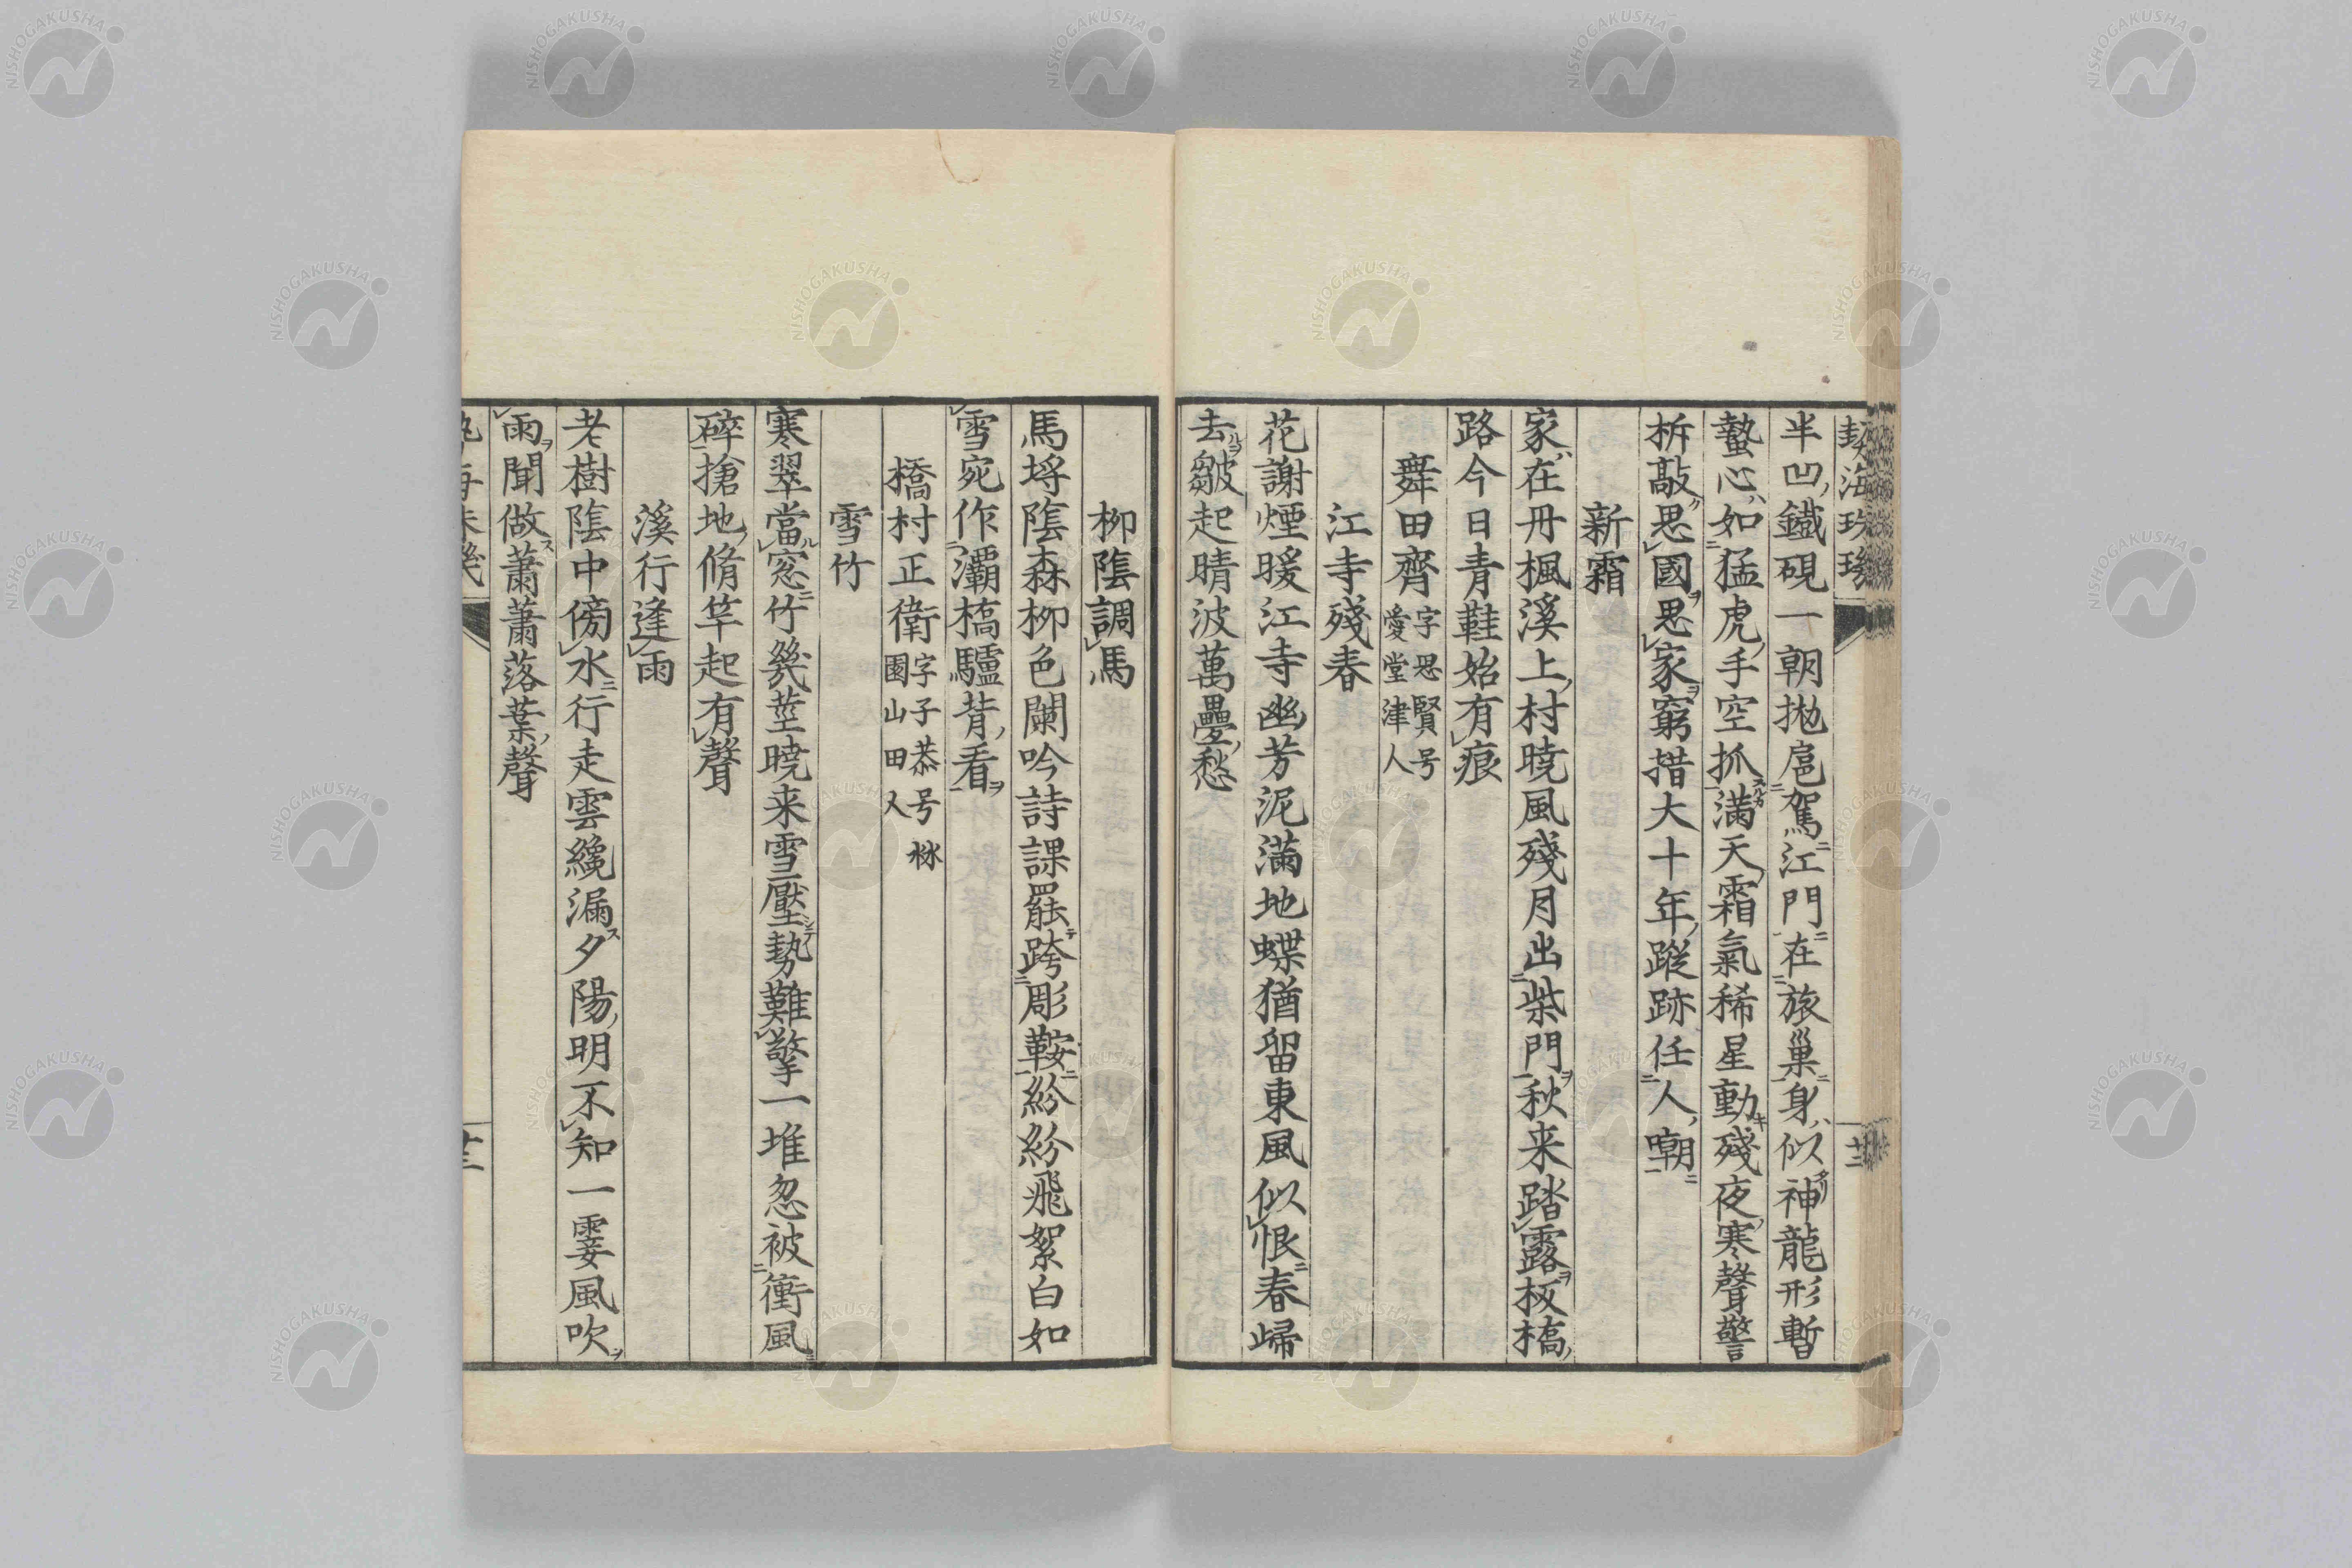 半凹鐵硯一朝抛扈駕江門在旅巢身似神龍形暫
蟄心如猛虎手空抓滿天霜氣稀星動殘夜寒聲警
柝敲思國思家窮措大十年蹤跡任人嘲
新霜
家在丹楓溪上村曉風殘月出柴門秋来踏露板橋
路今日青鞋始有痕
舞田齊 字思賢号愛堂津人
江寺殘春
花謝煙暖江寺幽芳泥滿地蝶猶留東風似恨春歸
去皺起晴波萬疊愁
柳陰調馬
馬埒陰森柳色闌吟詩課罷跨彫鞍紛紛飛絮白如
雪宛作灞橋驢背看
橋村正衛 字子恭号𣏌園山田人
雪竹
寒翠當窓竹幾莖曉来雪壓勢難擎一堆忽被衝風
碎搶地脩竿起有聲
溪行逢雨
老樹陰中傍水行走雲纔漏夕陽明不知一霎風吹
雨聞做蕭蕭落葉聲
廿三